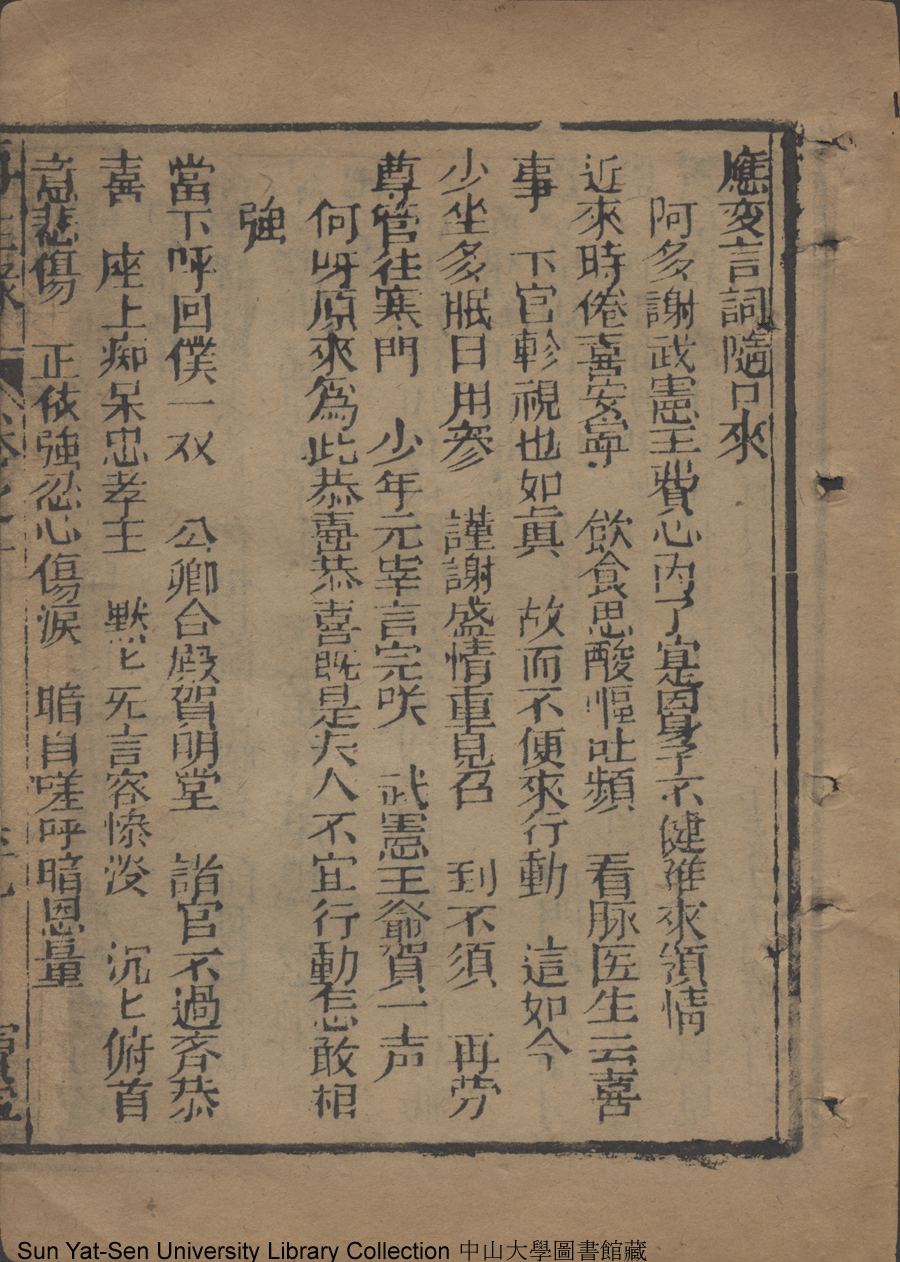 應变言詞隨口來
阿多謝武憲王費心內了寔因身子不健难來領情
近來時倦喜安寕 飲食思酸慪吐頻 看脉医生云喜
事 下官軫視也如真 故而不便來行動 這如今
少坐多眠日用參 謹謝盛情重見召 到不須 再劳
尊管往寒門 少年元宰言完咲 武憲王爺賀一声
何呀原來為此恭喜恭喜既是夫人不宜行動怎敢相
強
當下呼回僕一双 公卿合殿賀明堂 諸官不過齐恭
喜 座上痴呆忠孝王 默〻无言容惨淡 沉〻俯首
意悲傷 正依強忍心傷淚 暗自嗟呼暗恩量
Sun Yat-Sen University Library Collection 中山大學圖書館藏